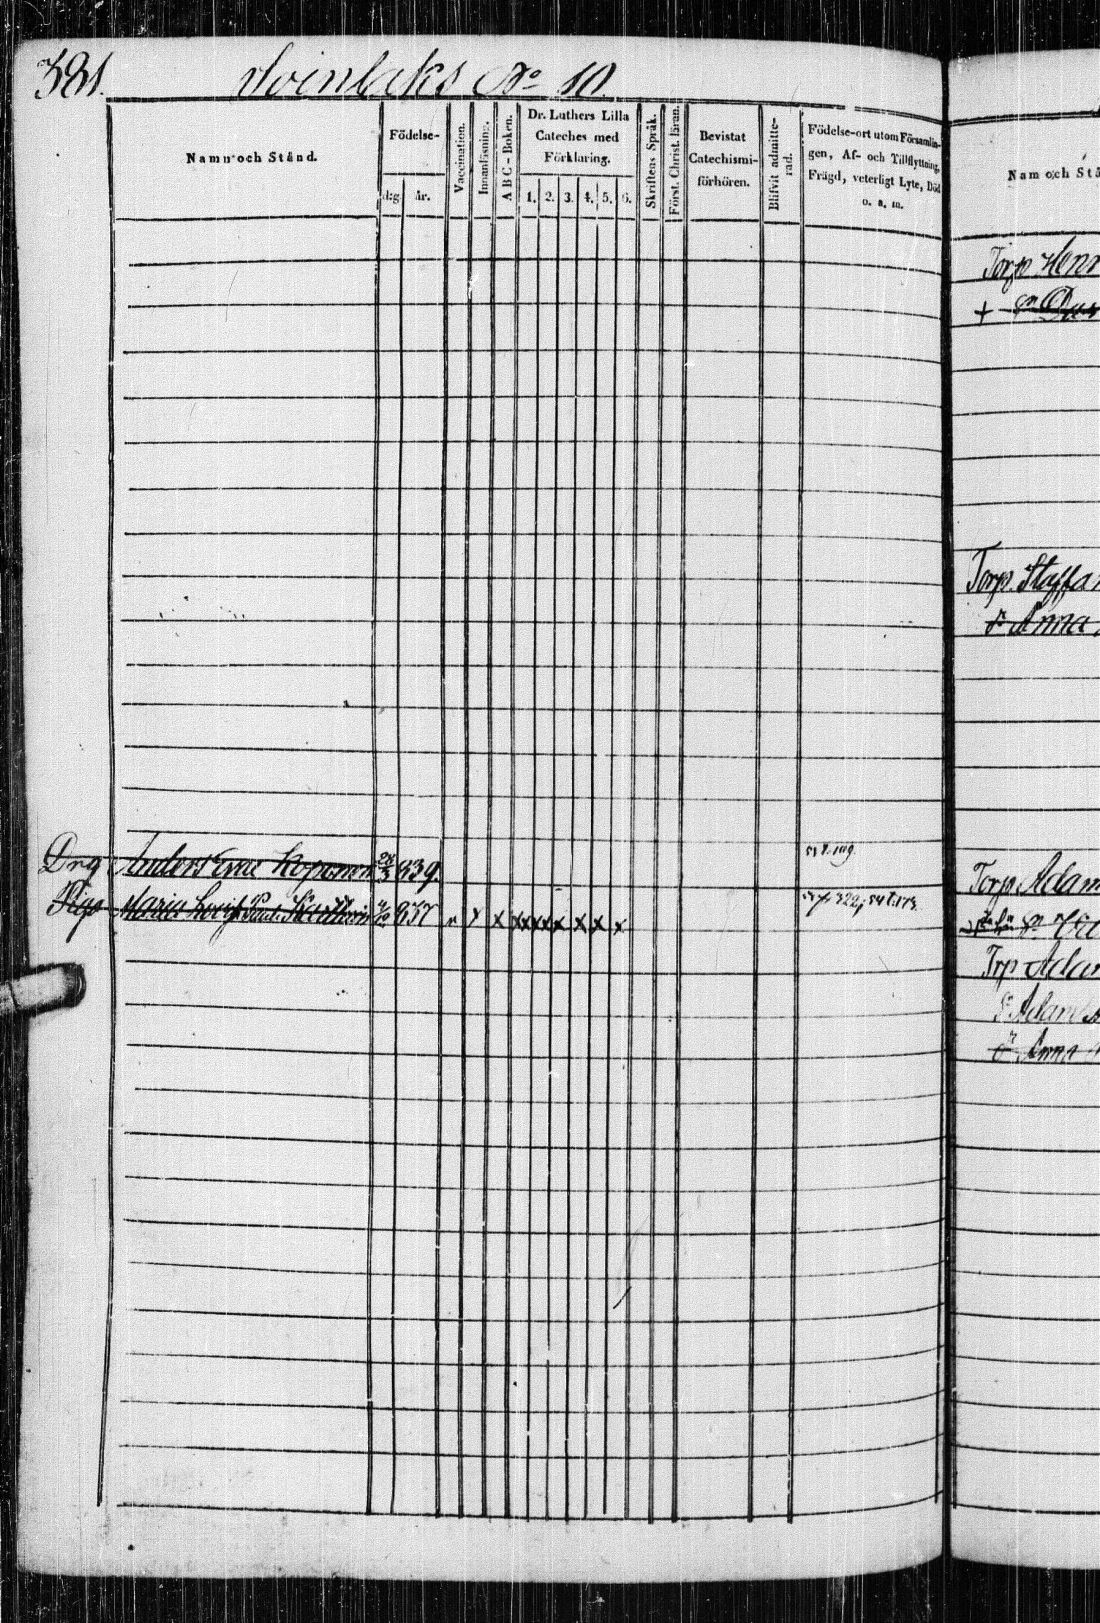 381.
Soinlaks No 10.
Namn och Stånd.
Födelse-
dag.
år.
Vaccination.
Innanläsning.
A B C - Boken.
Dr. Luthers Lilla
Cateches med
Förklaring.
1. 2. 3. 4. 5. 6.
Skriftens Språk.
Först. Christ. läran.
Bevistat
Catechismi-
förhören.
Blifvit admitte-
rad.
Födelse-ort utom Församlin-
gen, Af- och Tillflyttning,
Frägd, veterligt Lyte, Död
o. s. m.
Drg Anders Koponen 839.
Maria 837 x x xxxxx x x x
322;
Nam och Stå
Torp Henr
+
Torp. Staffan
Anna
Torp. Adam
Trp Adam
Adam
Anna